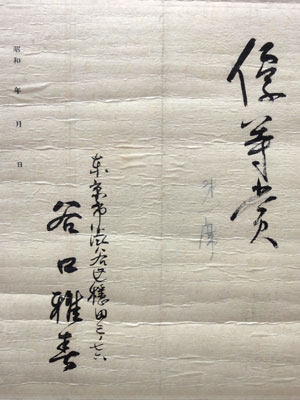 優等賞
東京市澁谷区穏田三ノ七六
谷口雅春
昭和 年 月 日